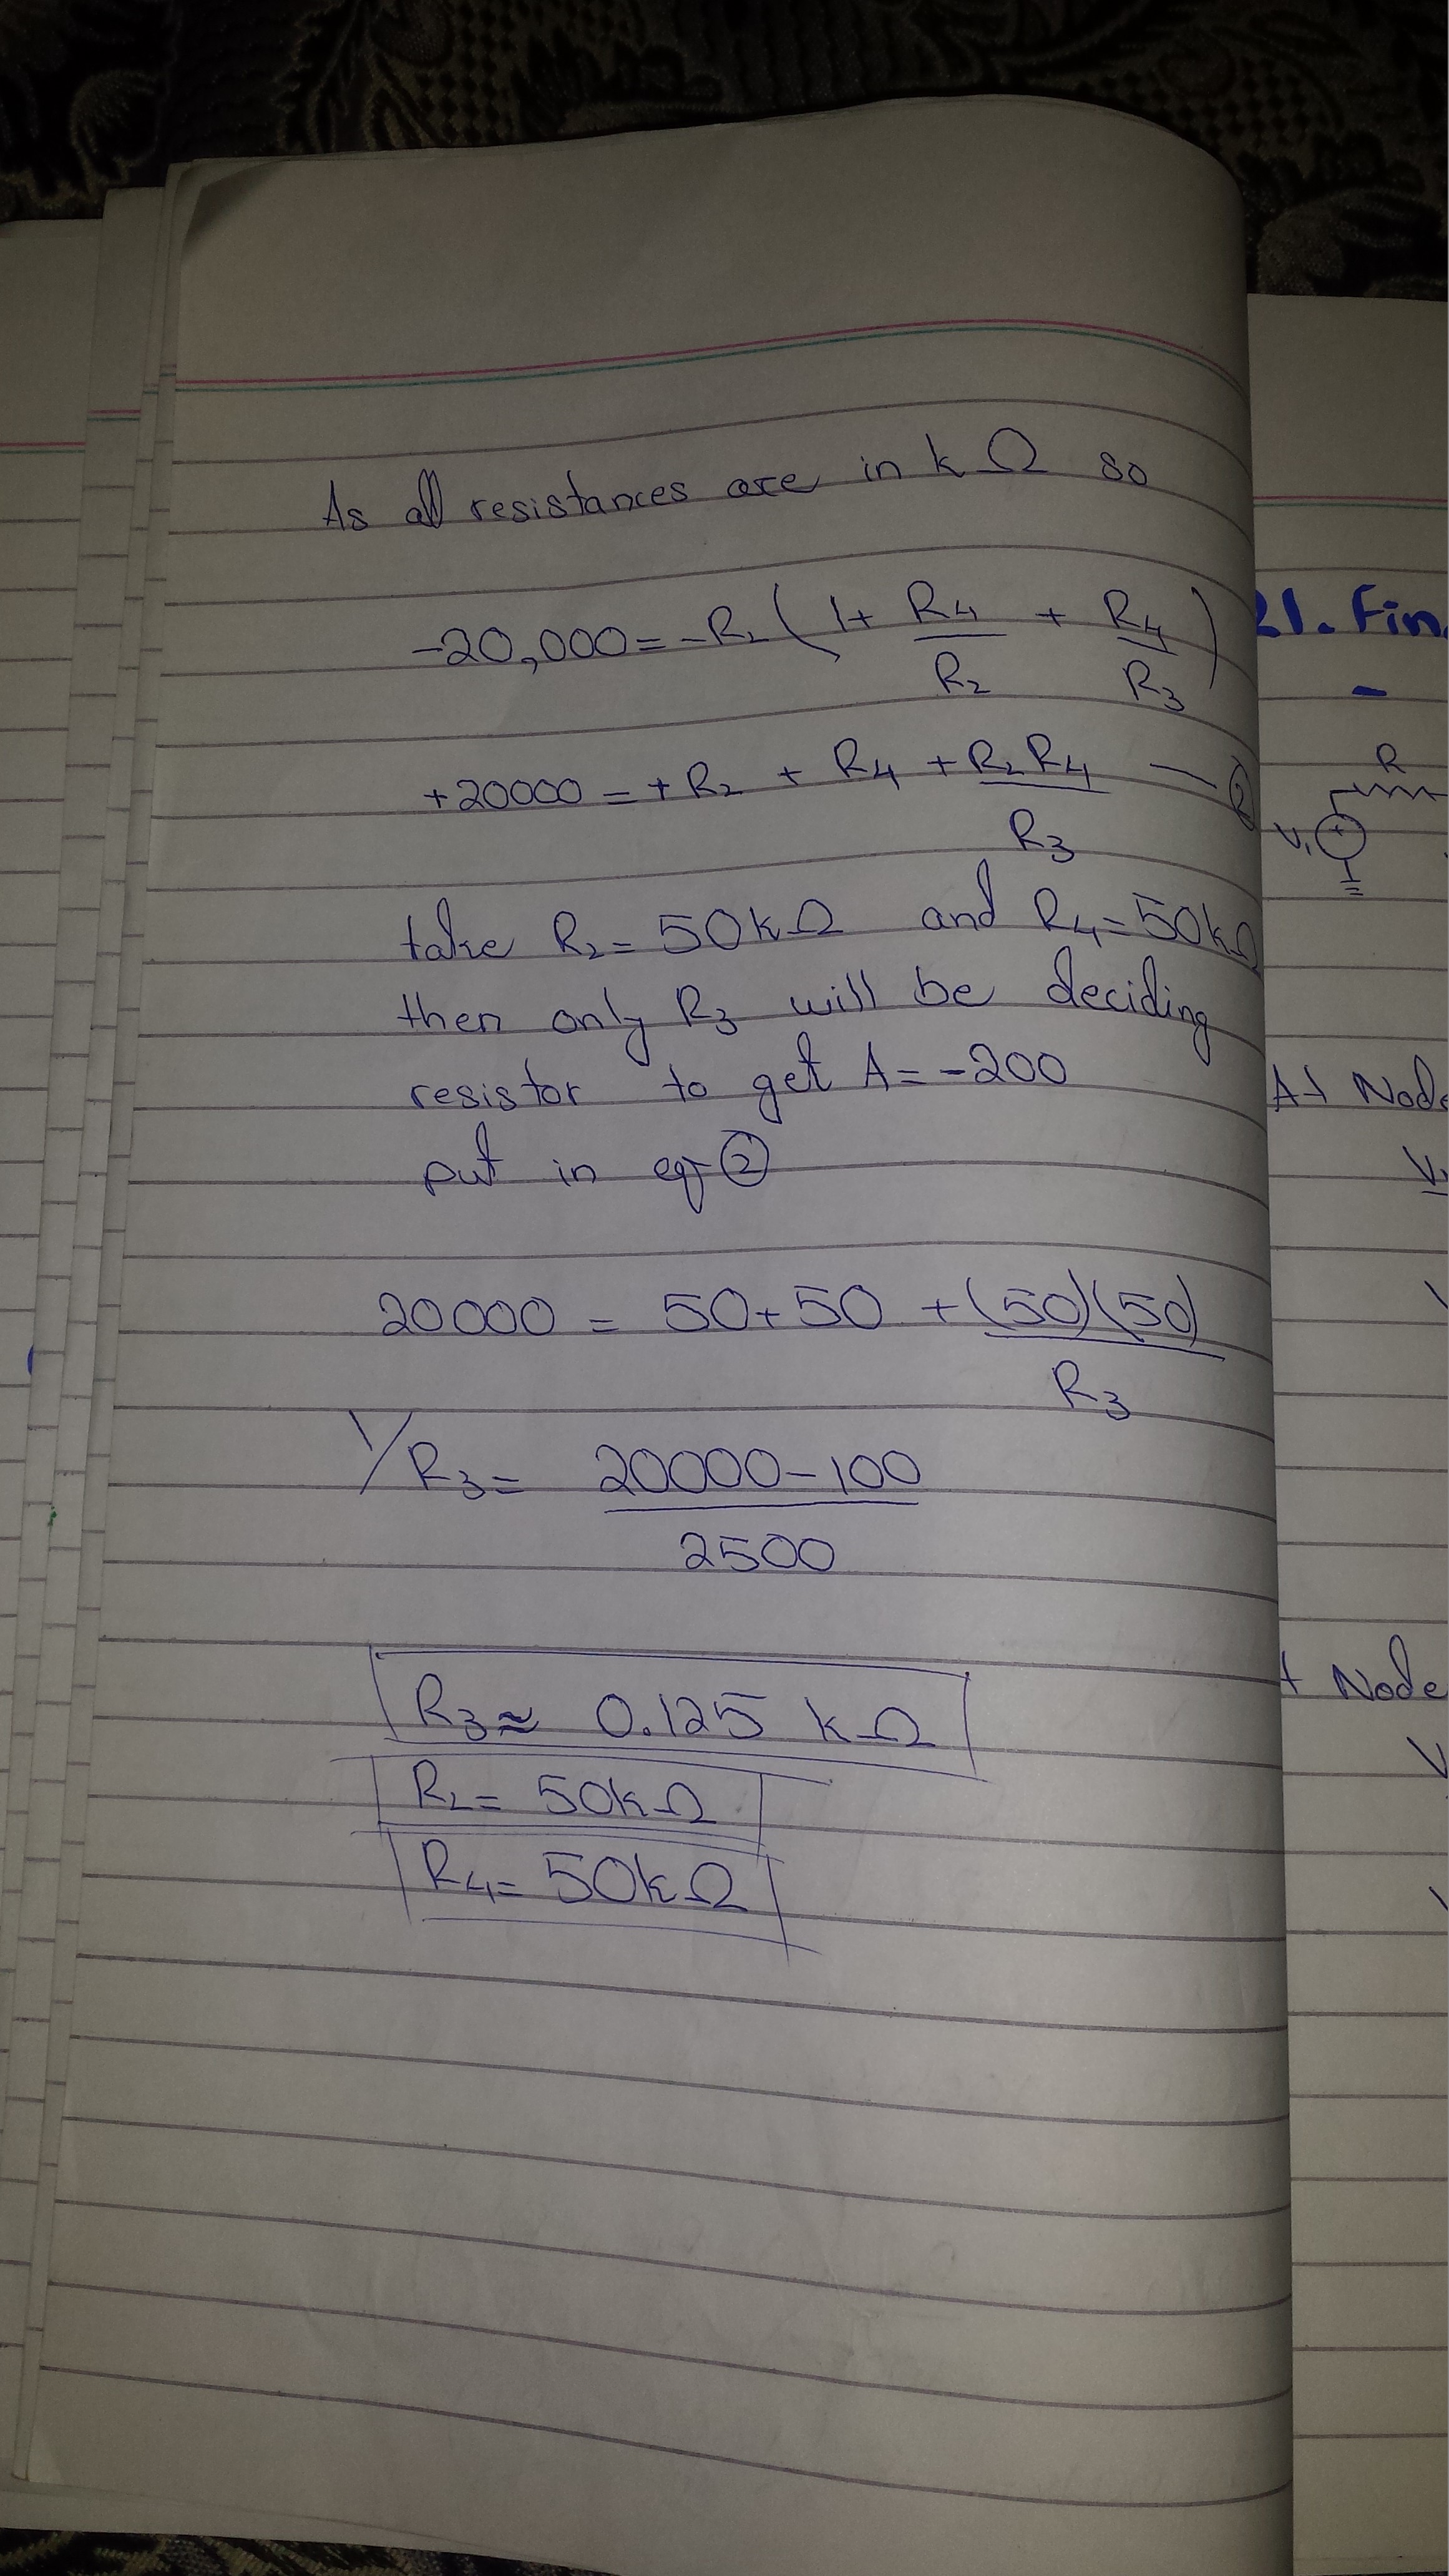 As all resistances are in k Ω so
-20,000 = -R₂ ( 1 + R₄/R₂ + R₄/R₃ )
+20000 = +R₂ + R₄ + R₂R₄/R₃ — ②
take R₂ = 50kΩ and R₄ = 50kΩ
then only R₃ will be deciding
resistor to get A = -200
put in eq ②
20000 = 50+50 + (50)(50)/R₃
1/R₃ = 20000-100/2500
R₃ ≈ 0.125 kΩ
R₂ = 50kΩ
R₄ = 50kΩ
21. Fin
R
V₁
At Node
Node